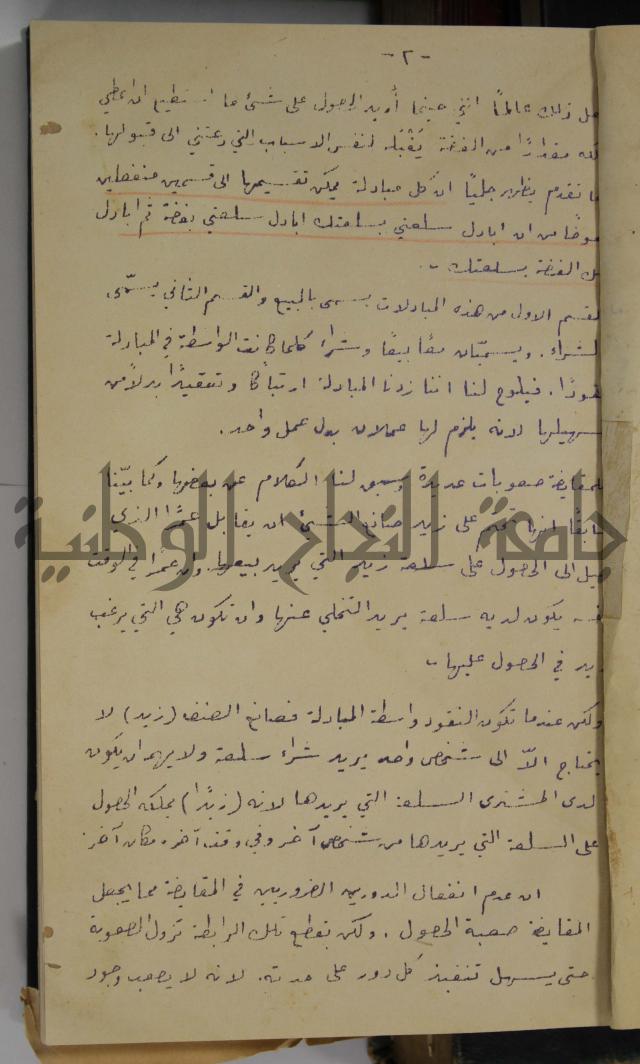 - ٢ -
ذلك عالمًا انني حينما أريد الحصول على شئ ما استطيع ان اعطي
مقدارًا من الفضة يَقْبَله لنفس الاسباب التي دعتني الى قبولها.
تقدم يظهر جليًا ان كل مبادلة يمكن تقسيمها الى قسمين منفصلين
من ان ابادل سلعتي بسلعتك ابادل سلعتي بفضة ثم ابادل
الفضة بسلعتك -
لقسم الاول من هذه المبادلات يسمى بالمبيع والقسم الثاني يسمّى
لشراء. ويسميّان معًا بيعًا وشراءً كلما كانت الواسطة في المبادلة
قودًا. فيلوح لنا اننا زدنا المبادلة ارتباكًا وتعقيدًا بدلاً من
سهيلها لانه يلزم لها عملان بدل عمل واحد.
للمقايضة صعوبات عديدة وسبق لنا الكلام عن بعضها وكما بيّنا
على زيد صانع الشئ ان يقابل عمرًا الذي
يميل الى الحصول على سلعة زيد التي يريد بيعها. وان عمرًا في الوقت
نفسه يكون لديه سلعة يريد التخلي عنها وان تكون هي التي يرغب
زيد في الحصول عليها -
ولكن عندما تكون النقود واسطة المبادلة فصانع الصنف (زيد) لا
يحتاج الاّ الى شخص واحد يريد شراء سلعة ولا يهمه ان يكون
لدى المشترى السلعة التي يريدها لانه (زيدًا) يمكنه الحصول
على السلعة التي يريدها من شخص آخر وفي وقت آخر ومكان آخر
ان عدم انفصال الدورين الضروريين في المقايضة مما يجعل
المقايضة صعبة الحصول. ولكن بقطع تلك الرابطة تزول الصعوبة
حتى يسهل تنفيذ كل دور على حدته. لانه لا يصعب وجود
جامعة النجاح الوطنية